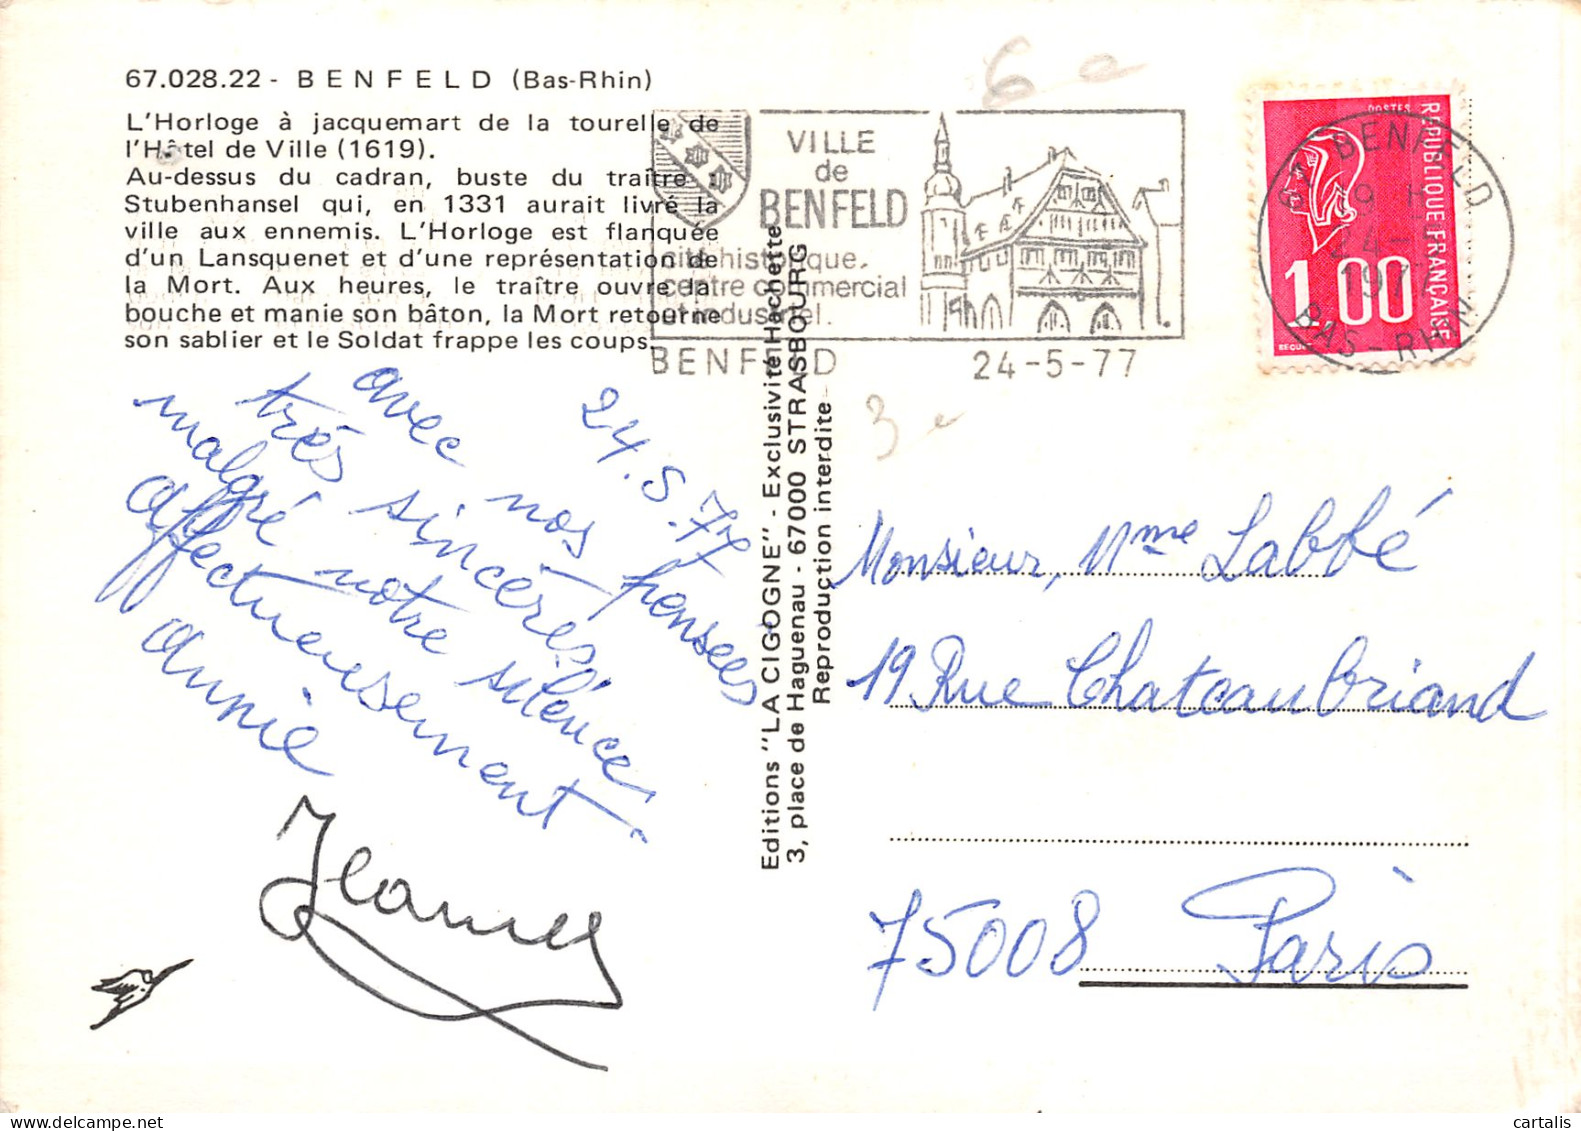 67.028.22 - BENFELD (Bas-Rhin)
L'Horloge à jacquemart de la tourelle de
l'Hôtel de Ville (1619).
Au-dessus du cadran, buste du traître
Stubenhansel qui, en 1331 aurait livré la
ville aux ennemis. L'Horloge est flanquée
d'un Lansquenet et d'une représentation de
la Mort. Aux heures, le traître ouvre la
bouche et manie son bâton, la Mort retourne
son sablier et le Soldat frappe les coups.
6 e
VILLE
de
BENFELD
cité historique.
centre commercial
et industriel.
BENFELD 24-5-77
POSTES
REPUBLIQUE FRANÇAISE
1,00
BEQUET
67 BENFELD
9 H
24-5
1977
BAS-RHIN
3 e
24.5.77
avec nos pensées
très sincères
malgré notre silence
affectueusement.
Annie
Editions "LA CIGOGNE" - Exclusivité Hachette
3, place de Haguenau - 67000 STRASBOURG
Reproduction interdite
Monsieur, Mme Labbé
19 Rue Chateaubriand
75008 Paris
cartalis